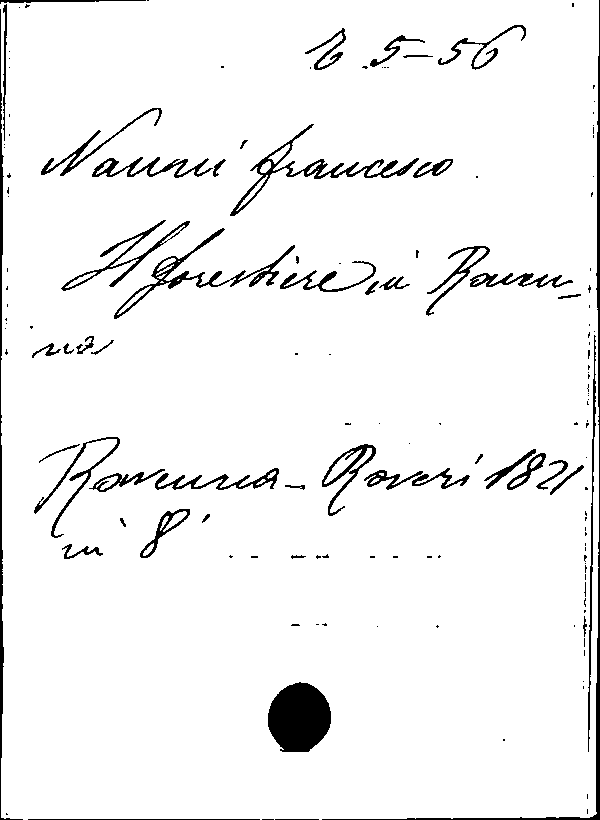 5-56
Nanni Francesco
Il forestiere in Raven-
na
Ravenna - Roveri 1821
in 8°